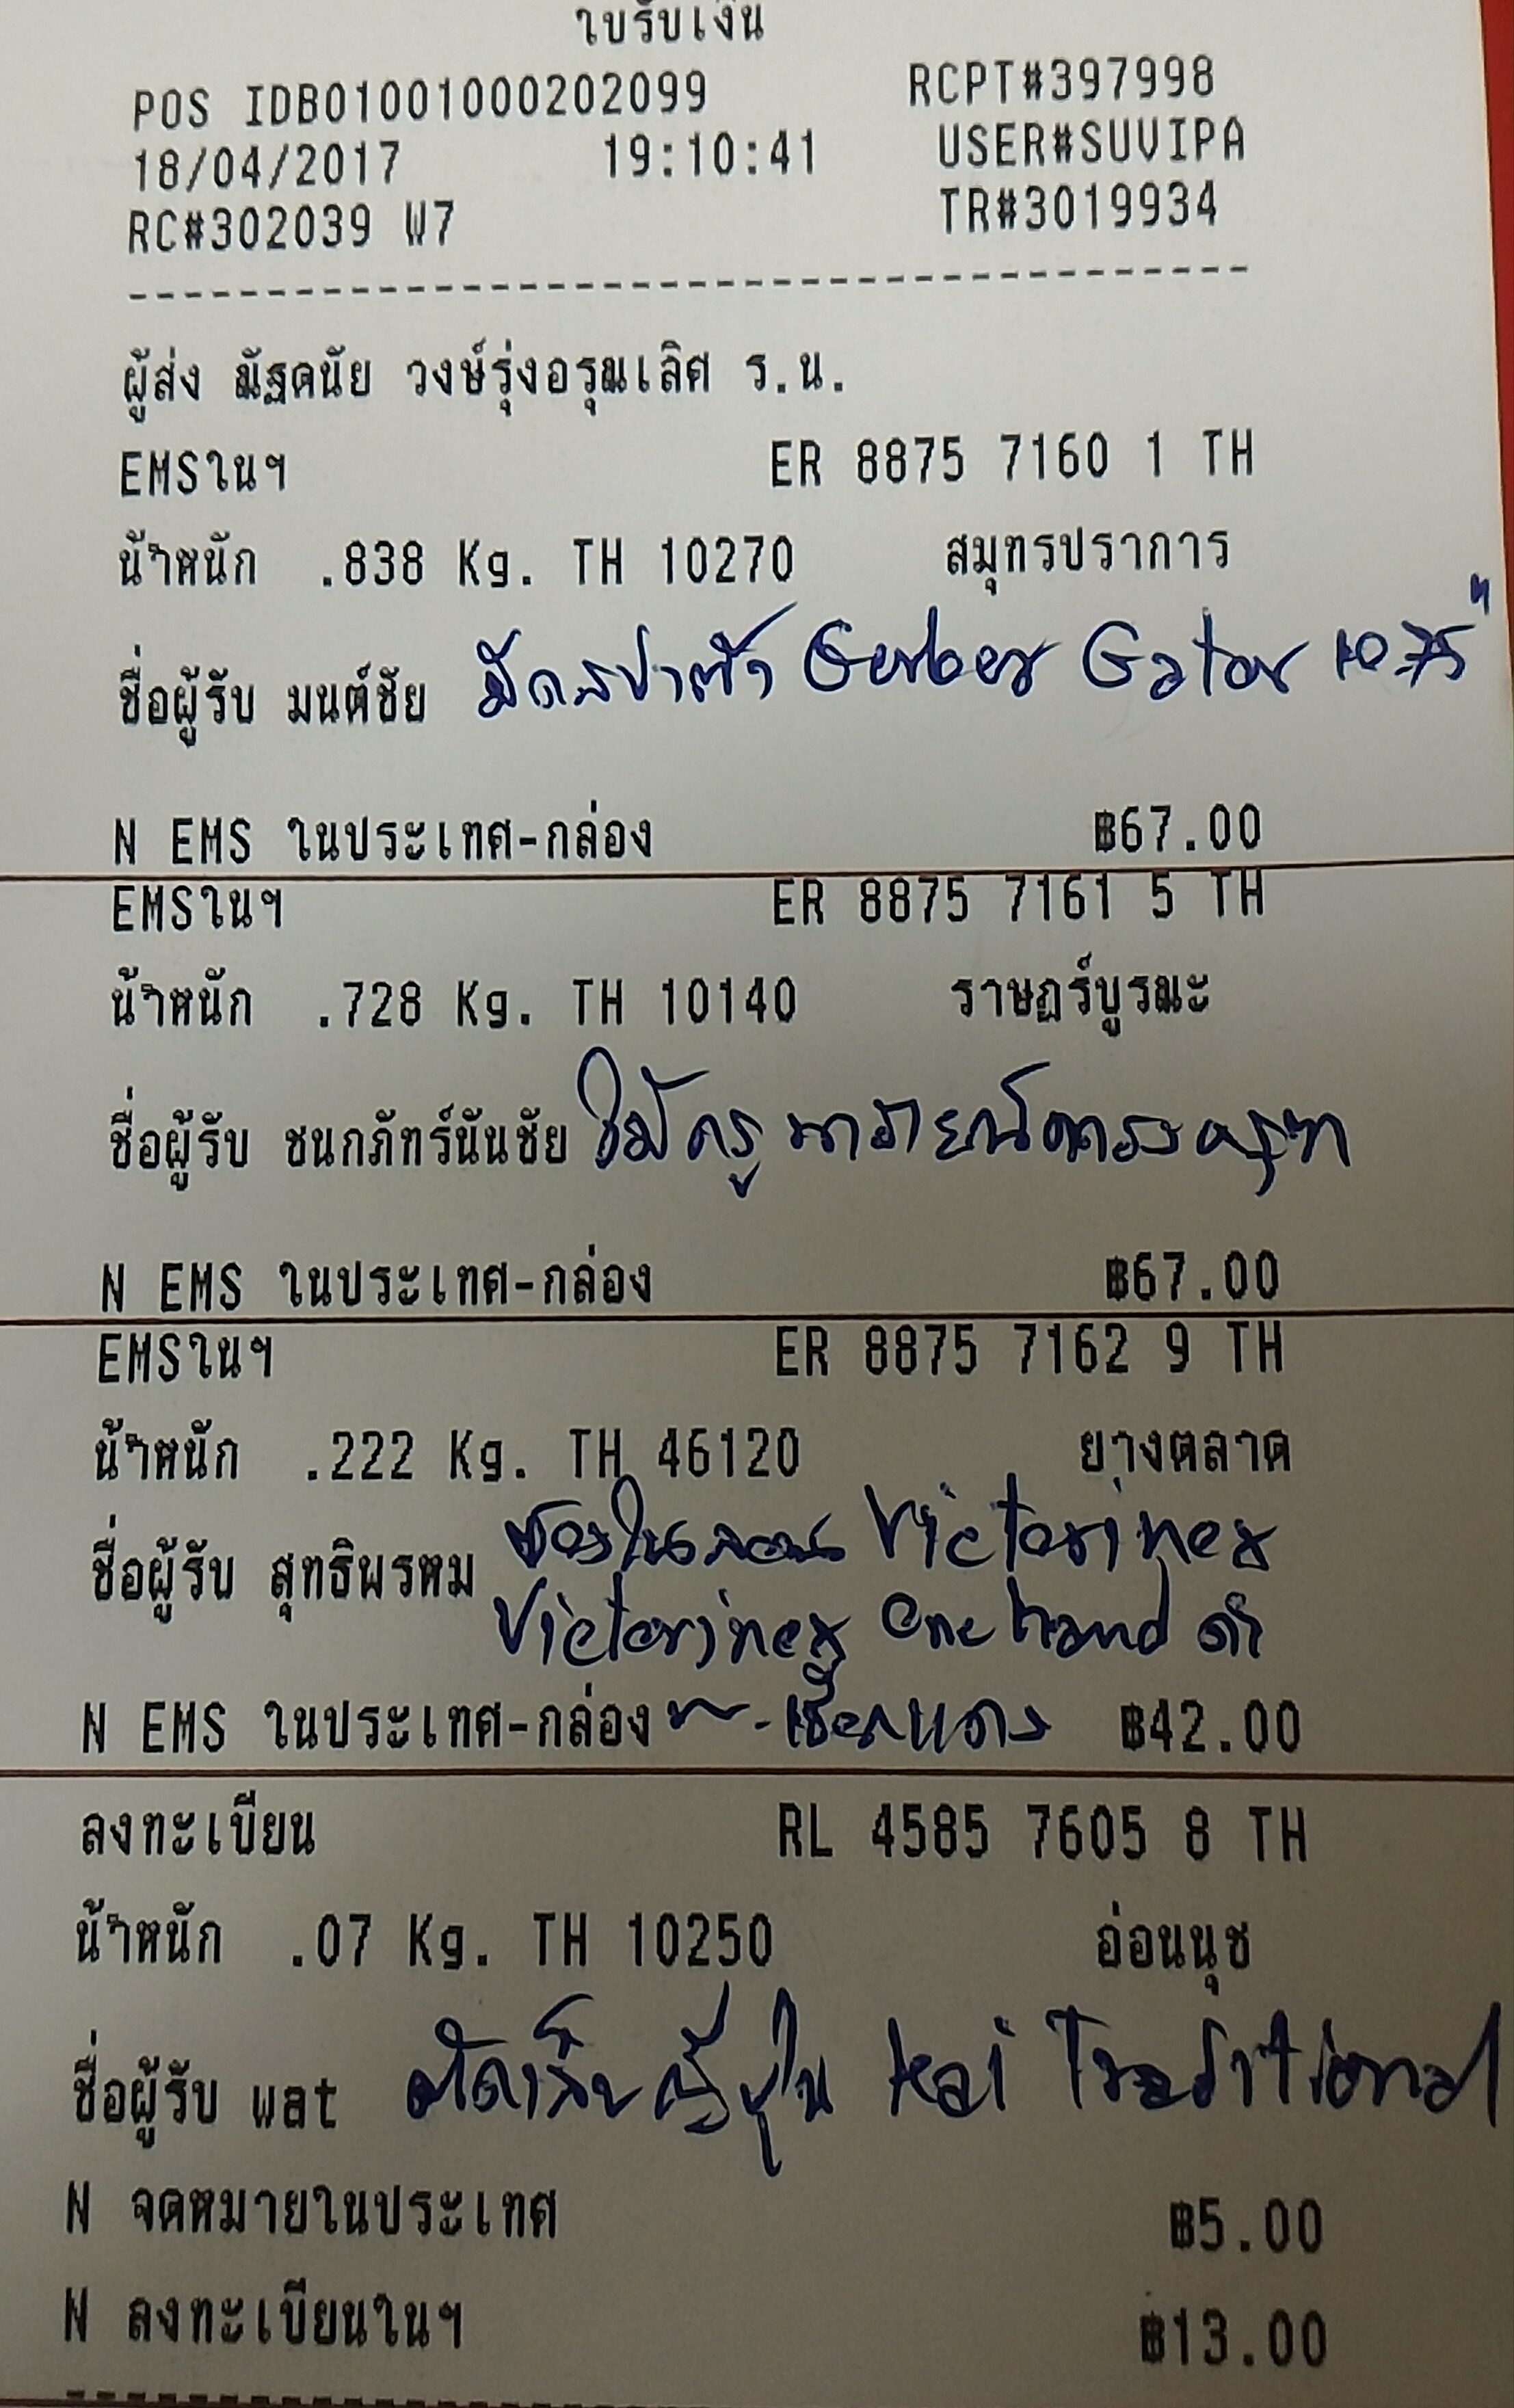 ใบรับเงิน
POS IDB01001000202099 RCPT#397998
18/04/2017 19:10:41 USER#SUVIPA
RC#302039 W7 TR#3019934
ผู้ส่ง ณัฐดนัย วงษ์รุ่งอรุณเลิศ ร.น.
EMSในฯ ER 8875 7160 1 TH
น้ำหนัก .838 Kg. TH 10270 สมุทรปราการ
ชื่อผู้รับ มนต์ชัย มีดสปาต้า Gerber Gator
N EMS ในประเทศ-กล่อง ฿67.00
EMSในฯ ER 8875 7161 5 TH
น้ำหนัก .728 Kg. TH 10140 ราษฎร์บูรณะ
ชื่อผู้รับ ชนกภัทร์นันชัย
N EMS ในประเทศ-กล่อง ฿67.00
EMSในฯ ER 8875 7162 9 TH
น้ำหนัก .222 Kg. TH 46120 ยางตลาด
ชื่อผู้รับ สุทธิพรหม ซองไนลอน Victorinox
Victorinox One hand ดำ
N EMS ในประเทศ-กล่อง -เชือกแดง ฿42.00
ลงทะเบียน RL 4585 7605 8 TH
น้ำหนัก .07 Kg. TH 10250 อ่อนนุช
ชื่อผู้รับ wat ตัดเล็บญี่ปุ่น Kai Traditional
N จดหมายในประเทศ ฿5.00
N ลงทะเบียนในฯ ฿13.00